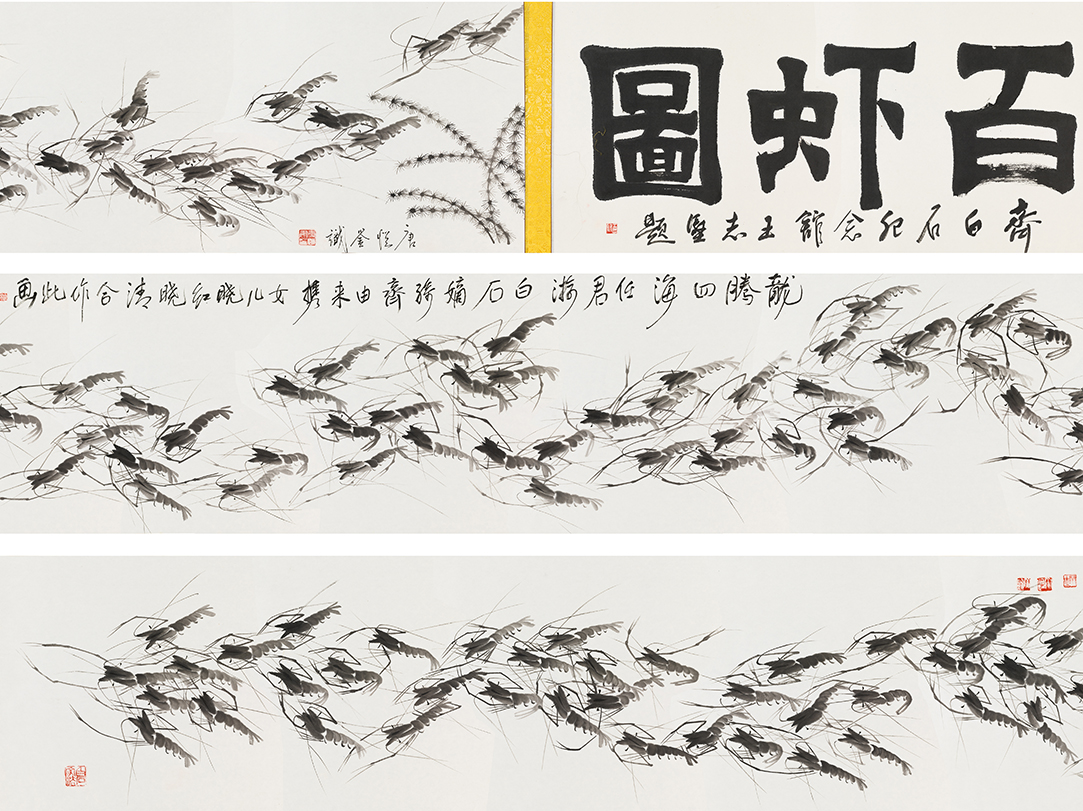 百虾圖
齊白石纪念館王志堅题
唐識
龍腾四海任君游白石嫡孫齊由来携女儿晓红晓清合作此画